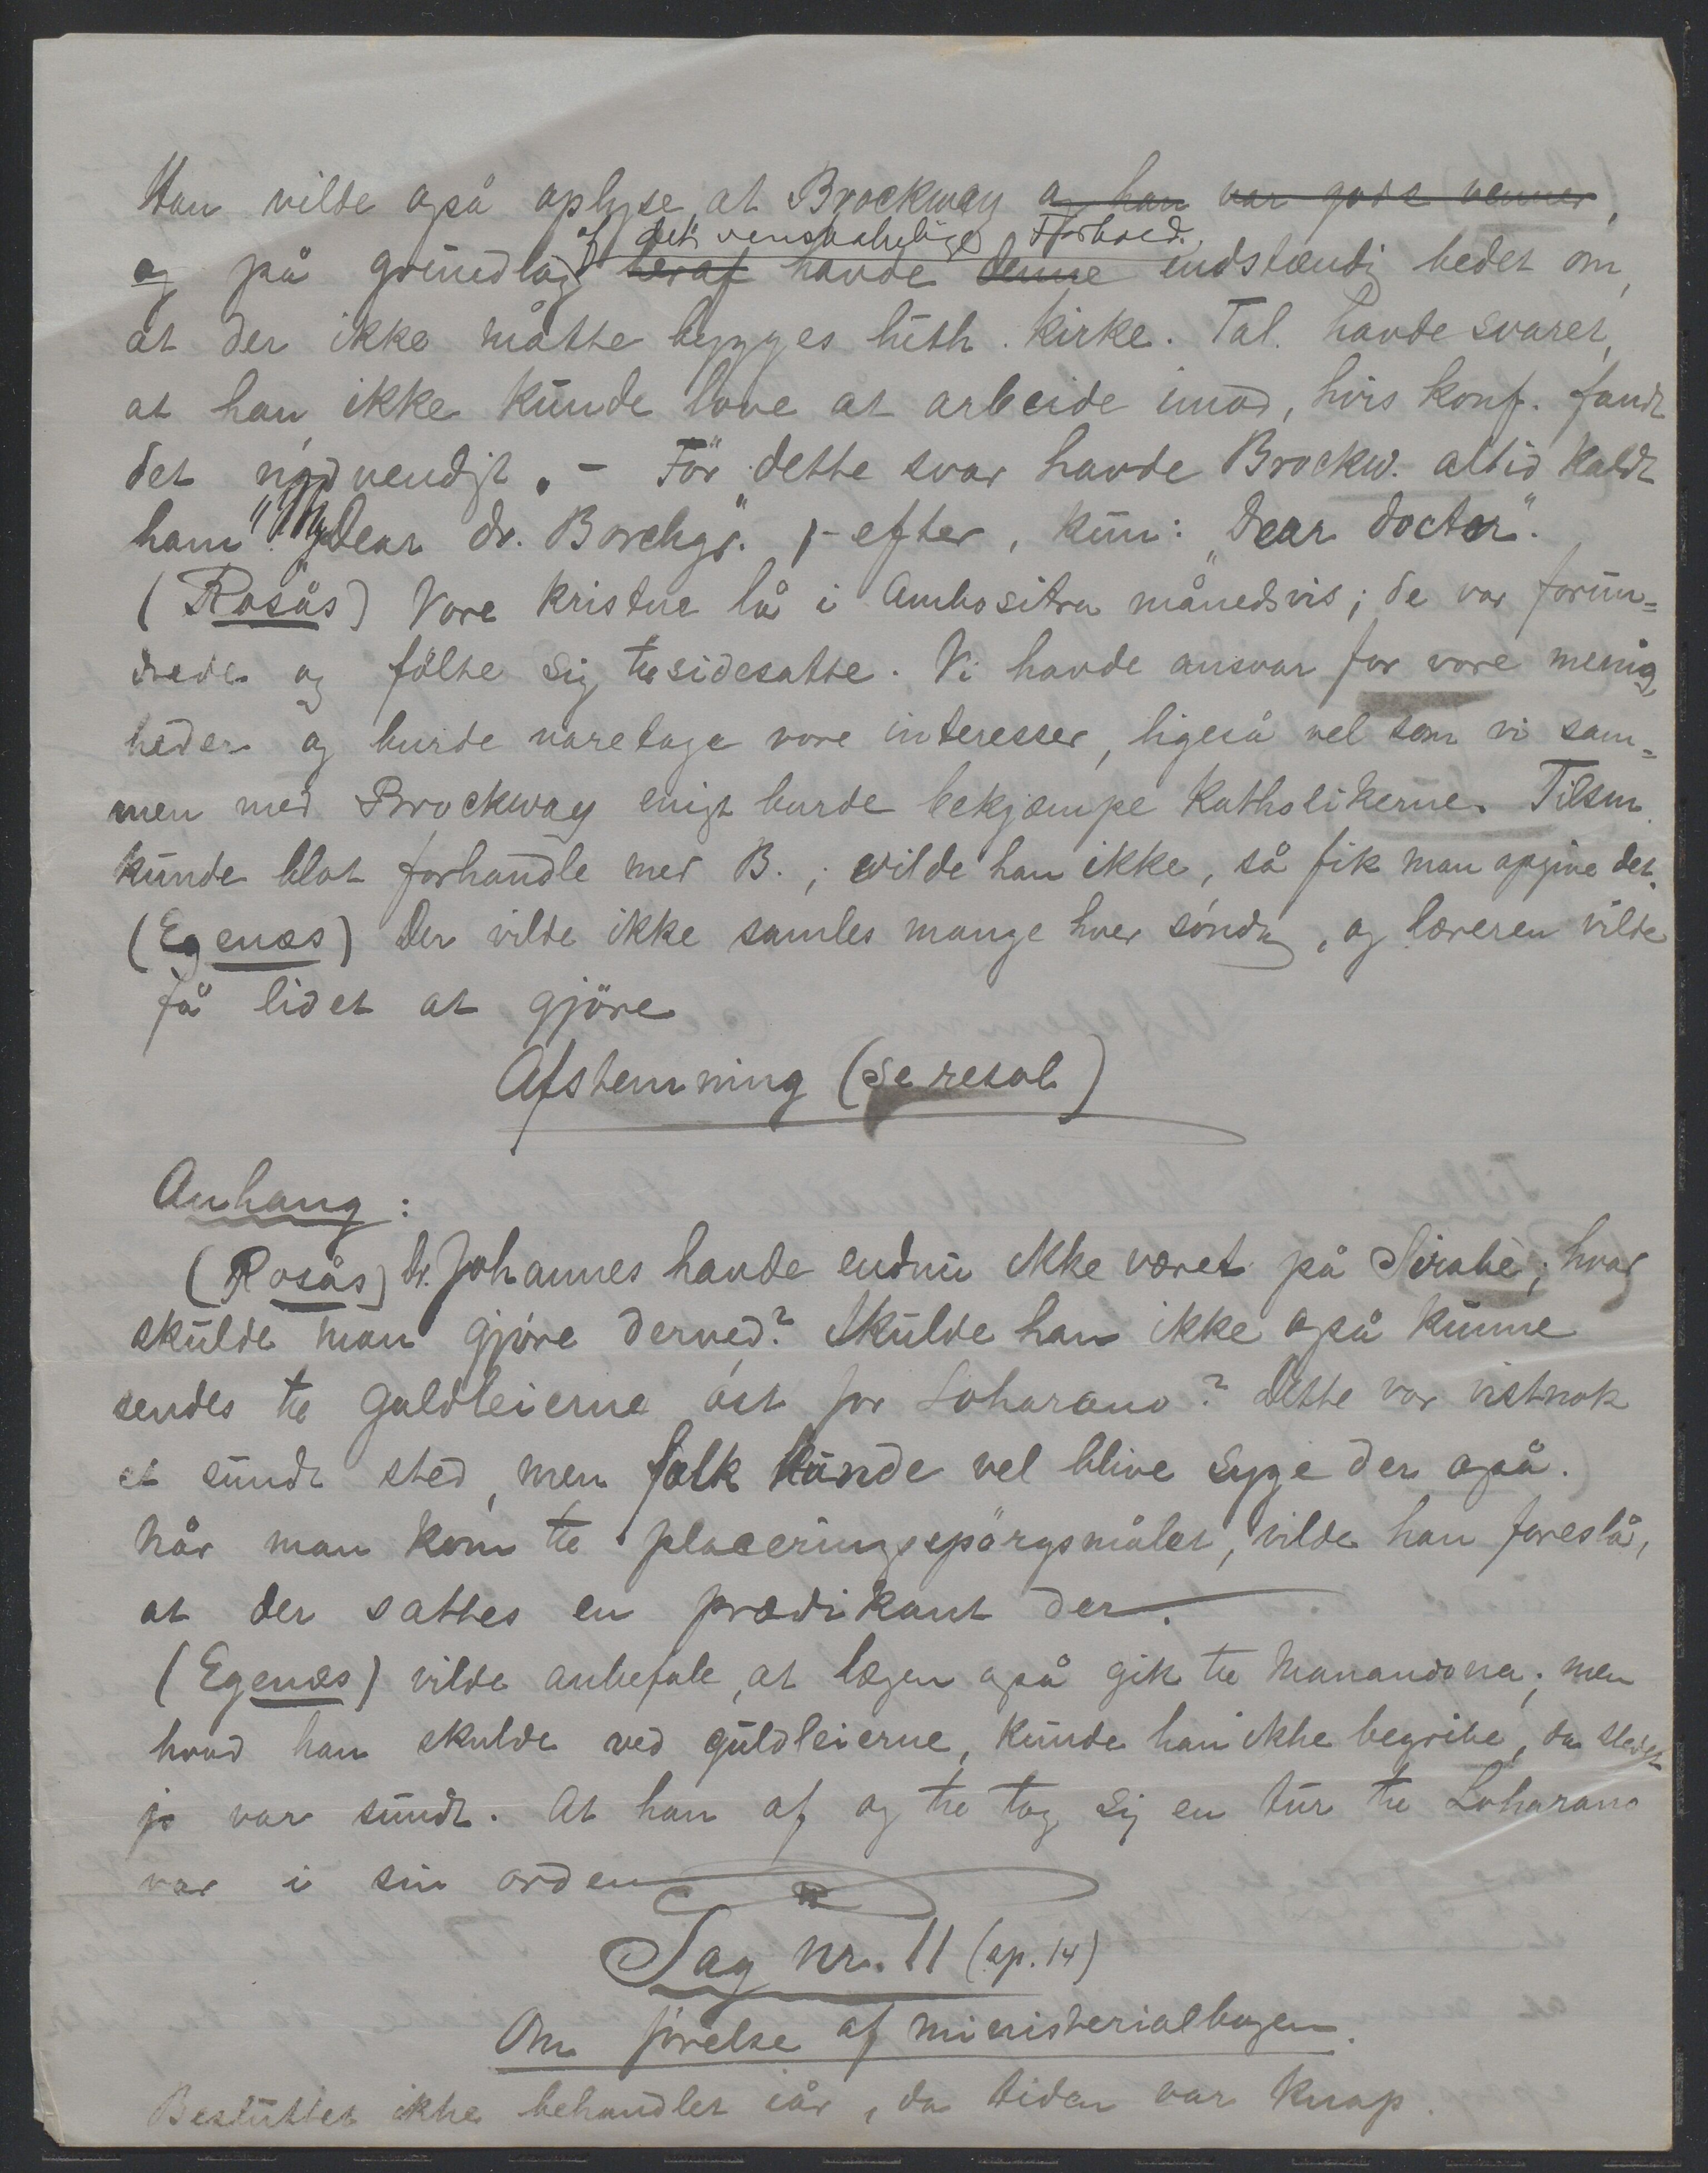 Han vilde også oplyse, at Brockway og han var gode venner,
af det venskabelige Forhold.
og på grundlag heraf havde denne indstændig bedet om,
at der ikke måtte bygges luth. kirke. Tal. havde svaret,
at han ikke kunde love at arbeide imod, hvis konf. fandt
det nødvendigt. - För dette svar havde Brockw. altid kaldt
ham "My Dear dr. Borchgr.", - efter, kun: "Dear doctor".
(Rosås) Vore kristne lå i Ambositra månedsvis; de var forun=
drede og fölte sig tilsidesatte. Vi havde ansvar for vore menig
heder og burde varetage vore interesser, ligeså vel som vi sam=
men med Brockway enigt burde bekjæmpe Katholikerne. Tilsm.
kunde blot forhandle med B.; vilde han ikke, så fik man opgive det.
(Egenæs) Der vilde ikke samles mange hver söndag, og læreren vilde
få lidet at gjöre
Afstemning (se resol)
Anhang:
(Rosås) Dr. Johannes havde endnu ikke været på Sirabe; hvad
skulde man gjöre derved? Skulde han ikke også kunne
sendes til Guldleierne öst for Loharano? Dette var vistnok
et sundt sted, men folk kunde vel blive syge der også.
Når man kom til placeringsspörgsmålet, vilde han foreslå,
at der sattes en prædikant der.
(Egenæs) vilde anbefale, at lægen også gik til Manandona; men
hvad han skulde ved guldleierne, kunde han ikke begribe, da stedet
jo var sundt. At han af og til tog sig en tur til Loharano
var i sin orden
Sag nr. 11 (ap. 14)
Om förelse af ministerialbogen.
Besluttet ikke behandlet iår, da tiden var knap.